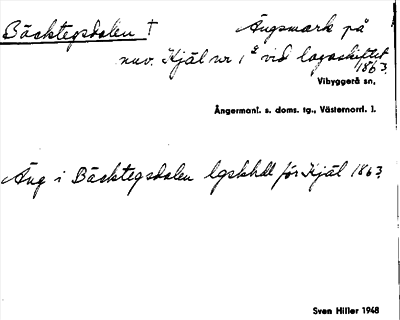 Bäcktegsdalen † Ängsmark på
nuv. Kjäl nr 1² vid lagaskiftet
1863.
Vibyggerå sn,
Ångermanl. s. doms. tg., Västernorrl. l.
Äng i Bäcktegsdalen lgskhdl för Kjäl 1863
Sven Hiller 1948